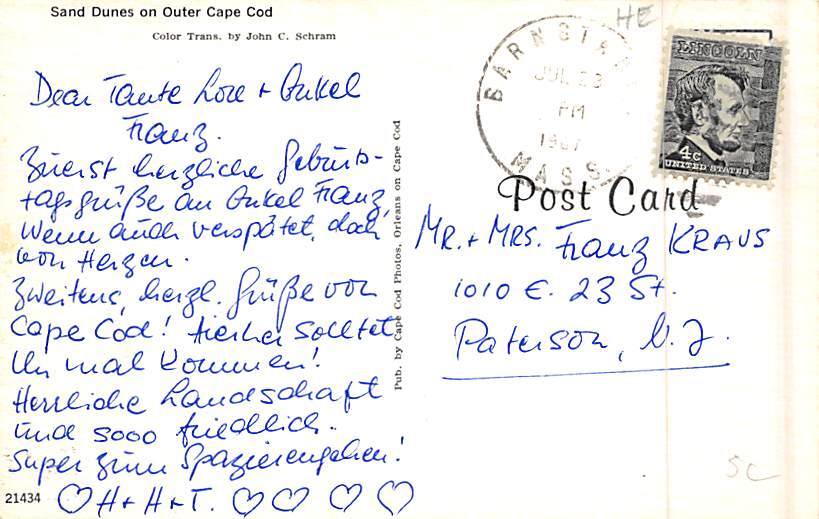 Sand Dunes on Outer Cape Cod
Color Trans. by John C. Schram
Dear Tante Lore + Onkel
Franz.
Zuerst herzliche Geburts-
tagsgrüße an Onkel Franz,
wenn auch verspätet, doch
von Herzen.
Zweitens, herzl. Grüße von
Cape Cod! Hierher solltet
Ihr mal kommen!
Herrliche Landschaft
und sooo friedlich.
Super zum Spazierengehen!
♡ H + H + T. ♡ ♡ ♡ ♡
21434
Pub. by Cape Cod Photos, Orleans on Cape Cod
HE
BARNSTA
JUL 23
PM
1967
MASS.
LINCOLN
4c
UNITED STATES
Post Card
MR. + MRS. Franz KRAUS
1010 E. 23 St.
Paterson, N.J.
SC